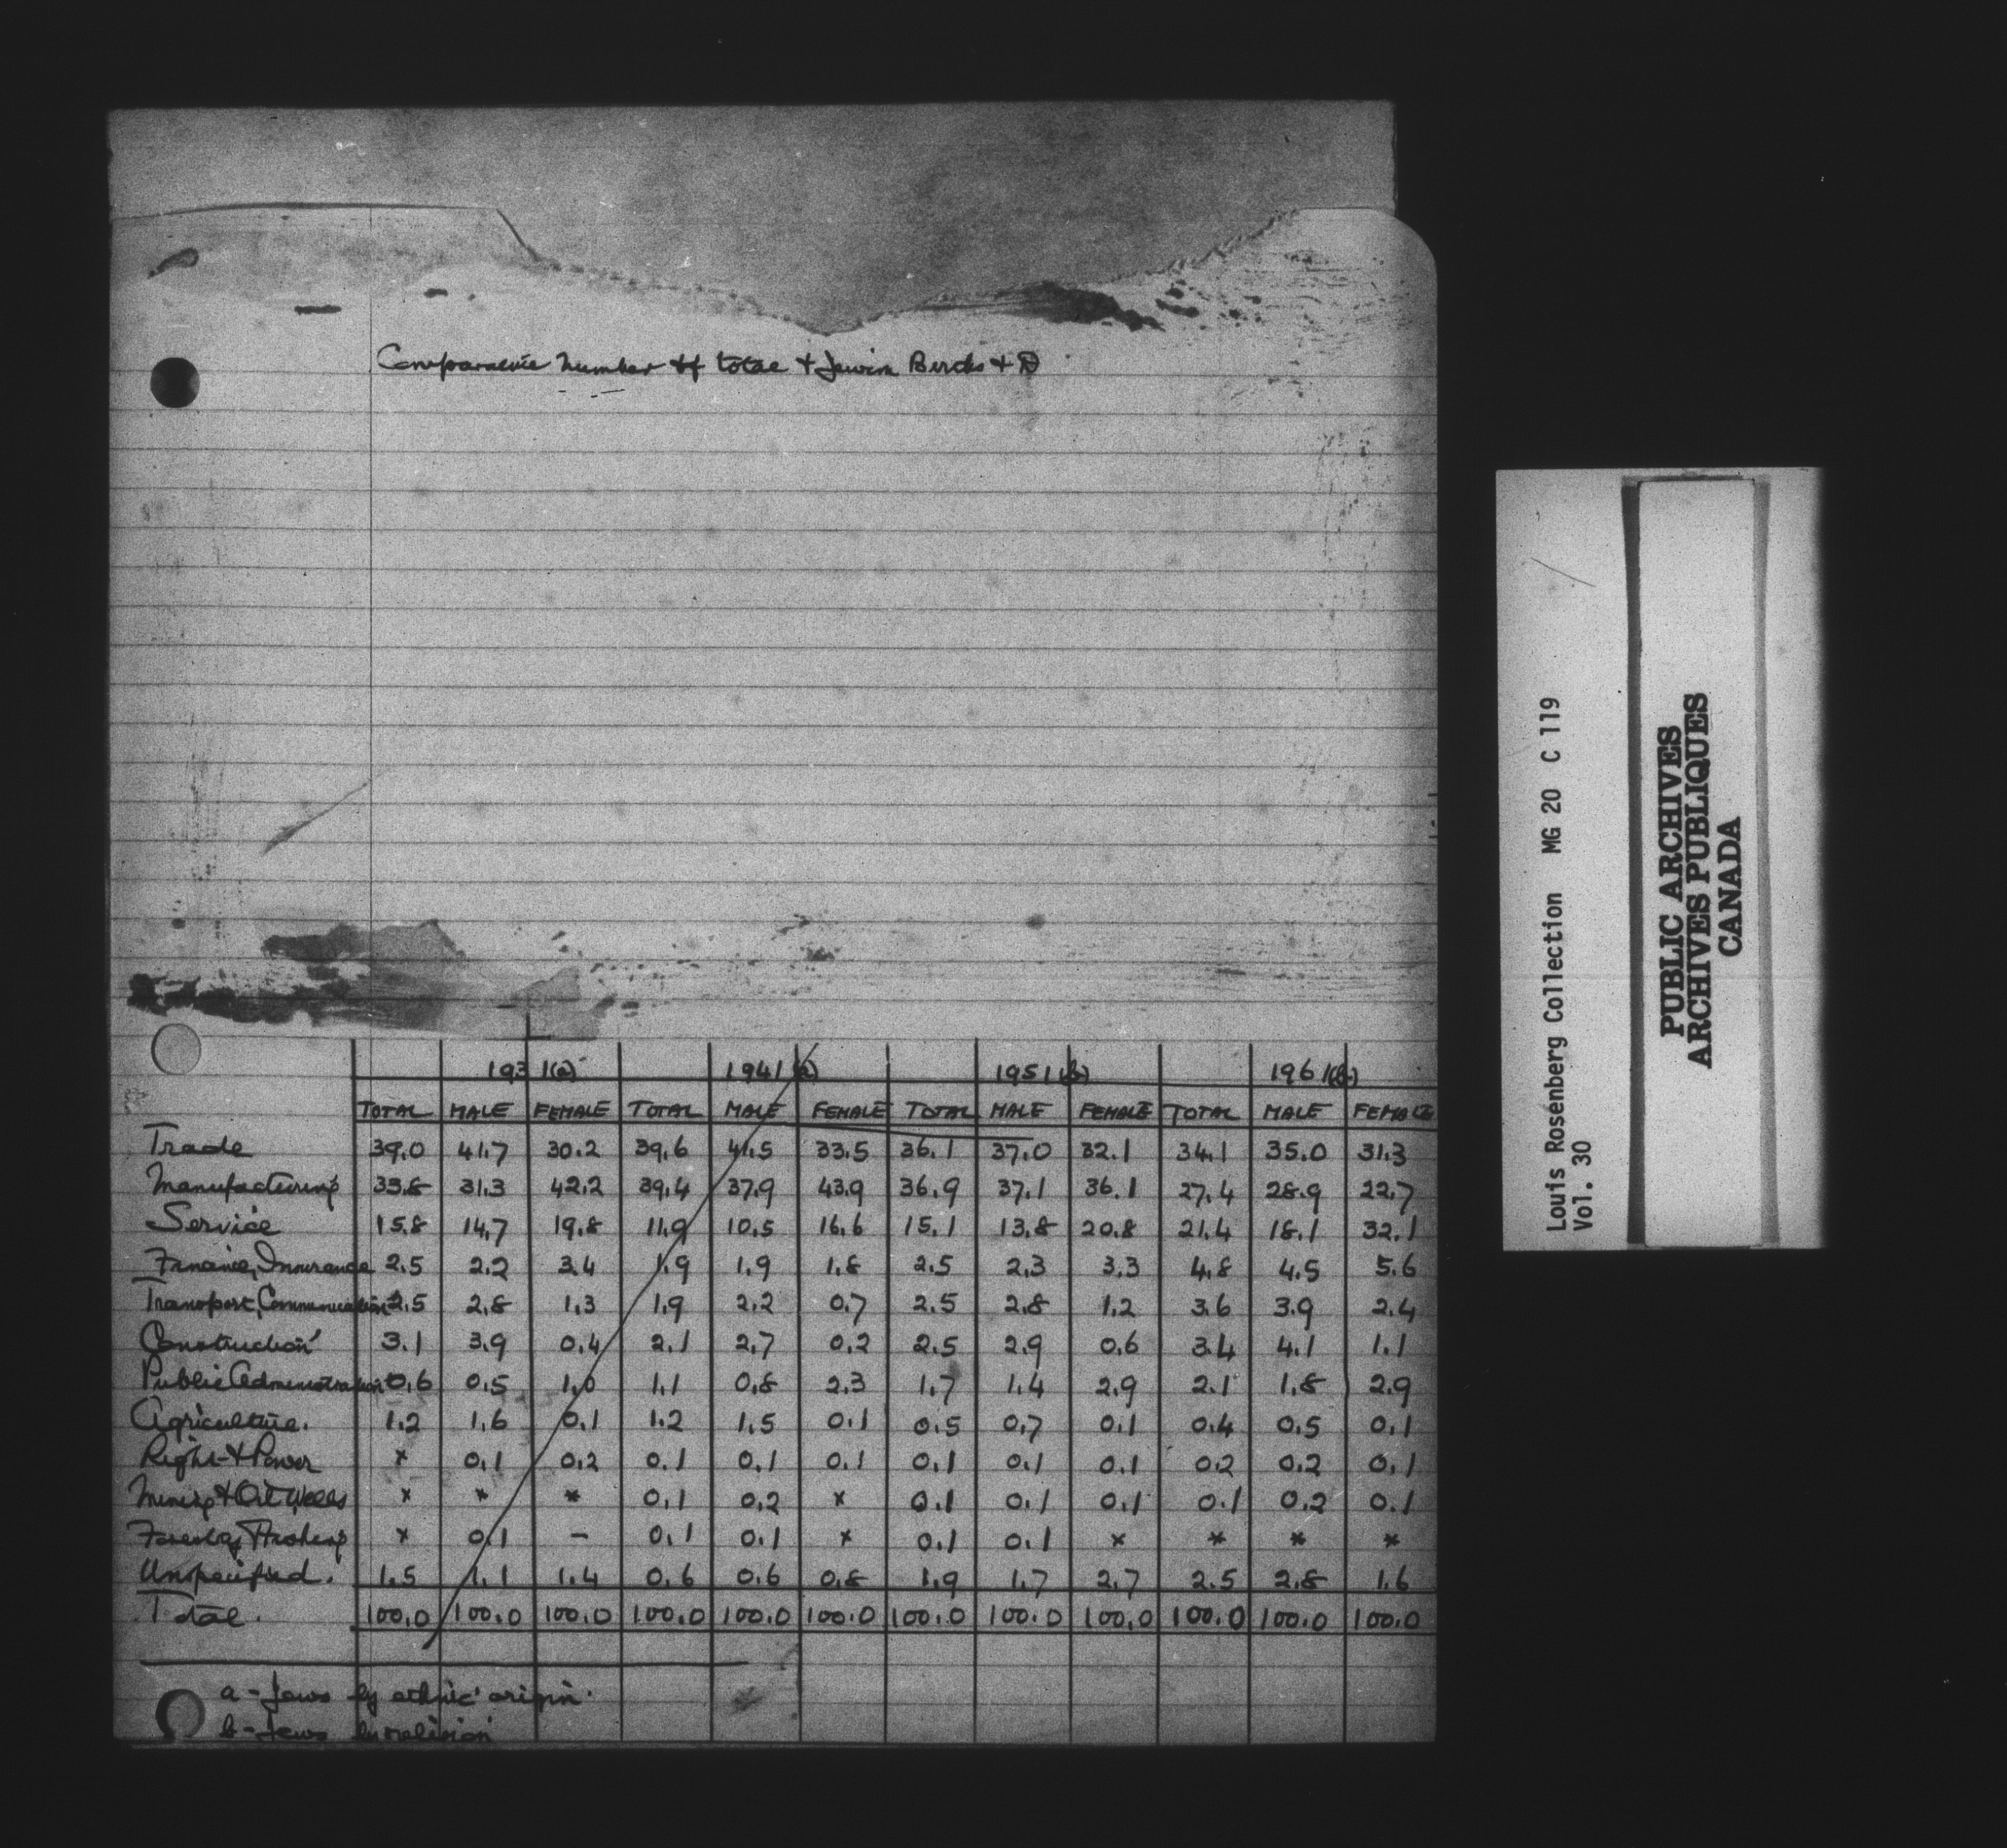 Comparative number of total & Jewish Births & D
1931(a) 1941(a) 1951(b) 1961(b)
TOTAL MALE FEMALE TOTAL MALE FEMALE TOTAL MALE FEMALE TOTAL MALE FEMALE
Trade 39.0 41.7 30.2 39.6 41.5 33.5 36.1 37.0 32.1 34.1 35.0 31.3
Manufacturing 33.8 31.3 42.2 39.4 37.9 43.9 36.9 37.1 36.1 27.4 28.9 22.7
Service 15.8 14.7 19.8 11.9 10.5 16.6 15.1 13.8 20.8 21.4 18.1 32.1
Finance, Insurance 2.5 2.2 3.4 1.9 1.9 1.8 2.5 2.3 3.3 4.8 4.5 5.6
Transport, Communication 2.5 2.8 1.3 1.9 2.2 0.7 2.5 2.8 1.2 3.6 3.9 2.4
Construction 3.1 3.9 0.4 2.1 2.7 0.2 2.5 2.9 0.6 3.4 4.1 1.1
Public Administration 0.6 0.5 1.0 1.1 0.8 2.3 1.7 1.4 2.9 2.1 1.8 2.9
Agriculture. 1.2 1.6 0.1 1.2 1.5 0.1 0.5 0.7 0.1 0.4 0.5 0.1
Light & Power x 0.1 0.2 0.1 0.1 0.1 0.1 0.1 0.1 0.2 0.2 0.1
Mining & Oil Wells x * * 0.1 0.2 x 0.1 0.1 0.1 0.1 0.2 0.1
Forestry, Fishing x 0.1 – 0.1 0.1 x 0.1 0.1 x * * *
Unspecified. 1.5 1.1 1.4 0.6 0.6 0.8 1.9 1.7 2.7 2.5 2.8 1.6
Total. 100.0 100.0 100.0 100.0 100.0 100.0 100.0 100.0 100.0 100.0 100.0 100.0
a - Jews by ethnic origin.
b - Jews by religion
Louis Rosenberg Collection MG 20 C 119
Vol. 30
PUBLIC ARCHIVES
ARCHIVES PUBLIQUES
CANADA